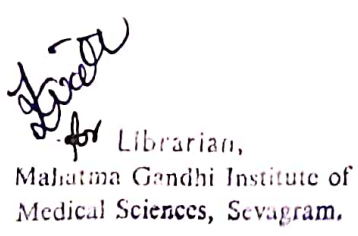 for Librarian,
Mahatma Gandhi Institute of
Medical Sciences, Sevagram.